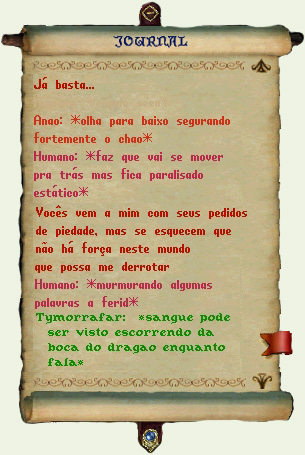 JOURNAL
Já basta...
Anao: *olha para baixo segurando
fortemente o chao*
Humano: *faz que vai se mover
pra trás mas fica paralisado
estático*
Vocês vem a mim com seus pedidos
de piedade, mas se esquecem que
não há força neste mundo
que possa me derrotar
Humano: *murmurando algumas
palavras a ferid*
Tymorrafar: *sangue pode
ser visto escorrendo da
boca do dragao enquanto
fala*